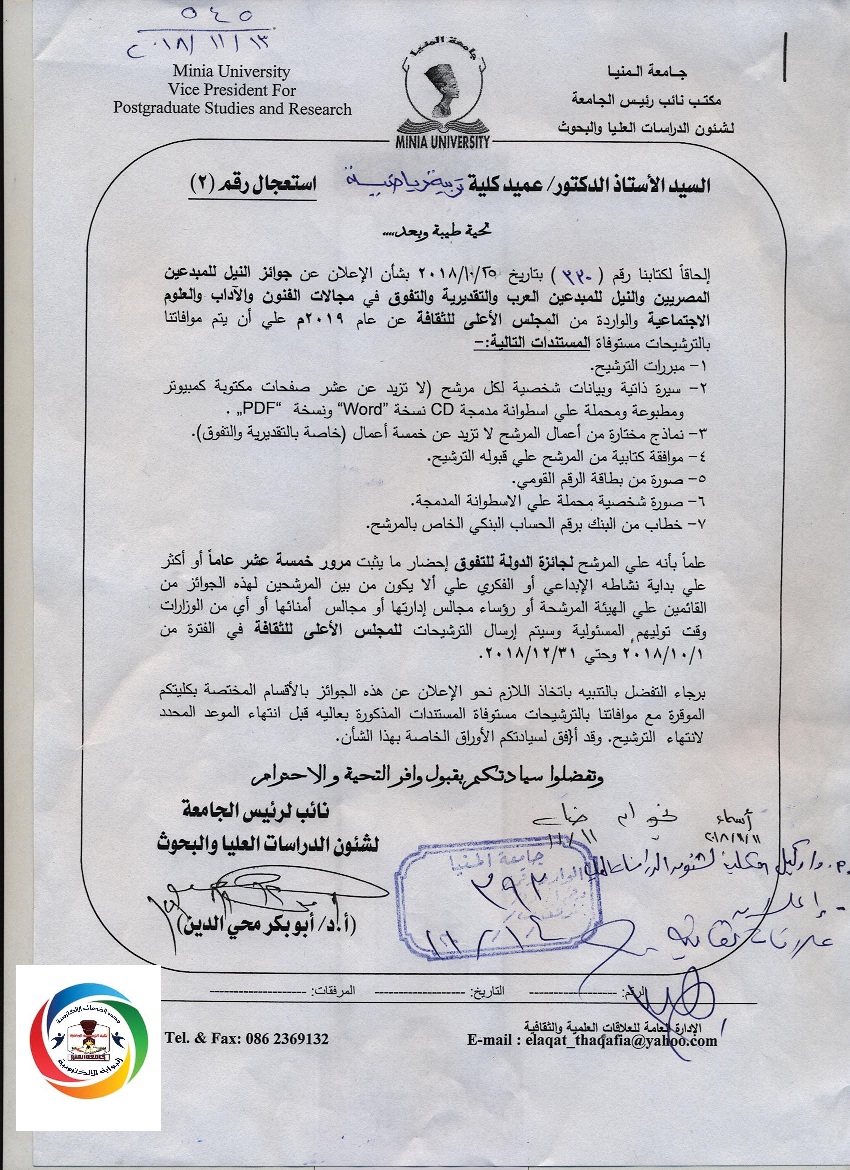 ٥٤٥
٢٠١٨/١١/١٣
Minia University
Vice President For
Postgraduate Studies and Research
جامعة المنيا
MINIA UNIVERSITY
جـامعة الـمنيا
مكتب نائب رئيس الجامعة
لشئون الدراسات العليا والبحوث
السيد الأستاذ الدكتور/ عميد كلية تربية رياضية استعجال رقم (٢)
تحية طيبة وبعد....
إلحاقاً لكتابنا رقم ( ٣٣٠ ) بتاريخ ٢٠١٨/١٠/٢٥ بشأن الإعلان عن جوائز النيل للمبدعين
المصريين والنيل للمبدعين العرب والتقديرية والتفوق في مجالات الفنون والآداب والعلوم
الاجتماعية والواردة من المجلس الأعلى للثقافة عن عام ٢٠١٩م علي أن يتم موافاتنا
بالترشيحات مستوفاة المستندات التالية:-
١- مبررات الترشيح.
٢- سيرة ذاتية وبيانات شخصية لكل مرشح (لا تزيد عن عشر صفحات مكتوبة كمبيوتر
ومطبوعة ومحملة علي اسطوانة مدمجة CD نسخة "Word" ونسخة "PDF" .
٣- نماذج مختارة من أعمال المرشح لا تزيد عن خمسة أعمال (خاصة بالتقديرية والتفوق).
٤- موافقة كتابية من المرشح علي قبوله الترشيح.
٥- صورة من بطاقة الرقم القومي.
٦- صورة شخصية محملة علي الاسطوانة المدمجة.
٧- خطاب من البنك برقم الحساب البنكي الخاص بالمرشح.
علماً بأنه علي المرشح لجائزة الدولة للتفوق إحضار ما يثبت مرور خمسة عشر عاماً أو أكثر
علي بداية نشاطه الإبداعي أو الفكري علي ألا يكون من بين المرشحين لهذه الجوائز من
القائمين علي الهيئة المرشحة أو رؤساء مجالس إدارتها أو مجالس أمنائها أو أي من الوزارات
وقت توليهم المسئولية وسيتم إرسال الترشيحات للمجلس الأعلى للثقافة في الفترة من
٢٠١٨/١٠/١ وحتي ٢٠١٨/١٢/٣١.
برجاء التفضل بالتنبيه باتخاذ اللازم نحو الإعلان عن هذه الجوائز بالأقسام المختصة بكليتكم
الموقرة مع موافاتنا بالترشيحات مستوفاة المستندات المذكورة بعاليه قبل انتهاء الموعد المحدد
لانتهاء الترشيح. وقد أُرفق لسيادتكم الأوراق الخاصة بهذا الشأن.
وتفضلوا سيادتكم بقبول وافر التحية والاحترام
نائب لرئيس الجامعة
لشئون الدراسات العليا والبحوث
(أ.د/ أبو بكر محي الدين)
أسماء
جامعة المنيا
٣٩٣
علاقات ثقافية
الرقم: ---------- التاريخ: ---------- المرفقات: ----------
الإدارة العامة للعلاقات العلمية والثقافية
Tel. & Fax: 086 2369132
E-mail : elaqat_thaqafia@yahoo.com
البوابة الالكترونية